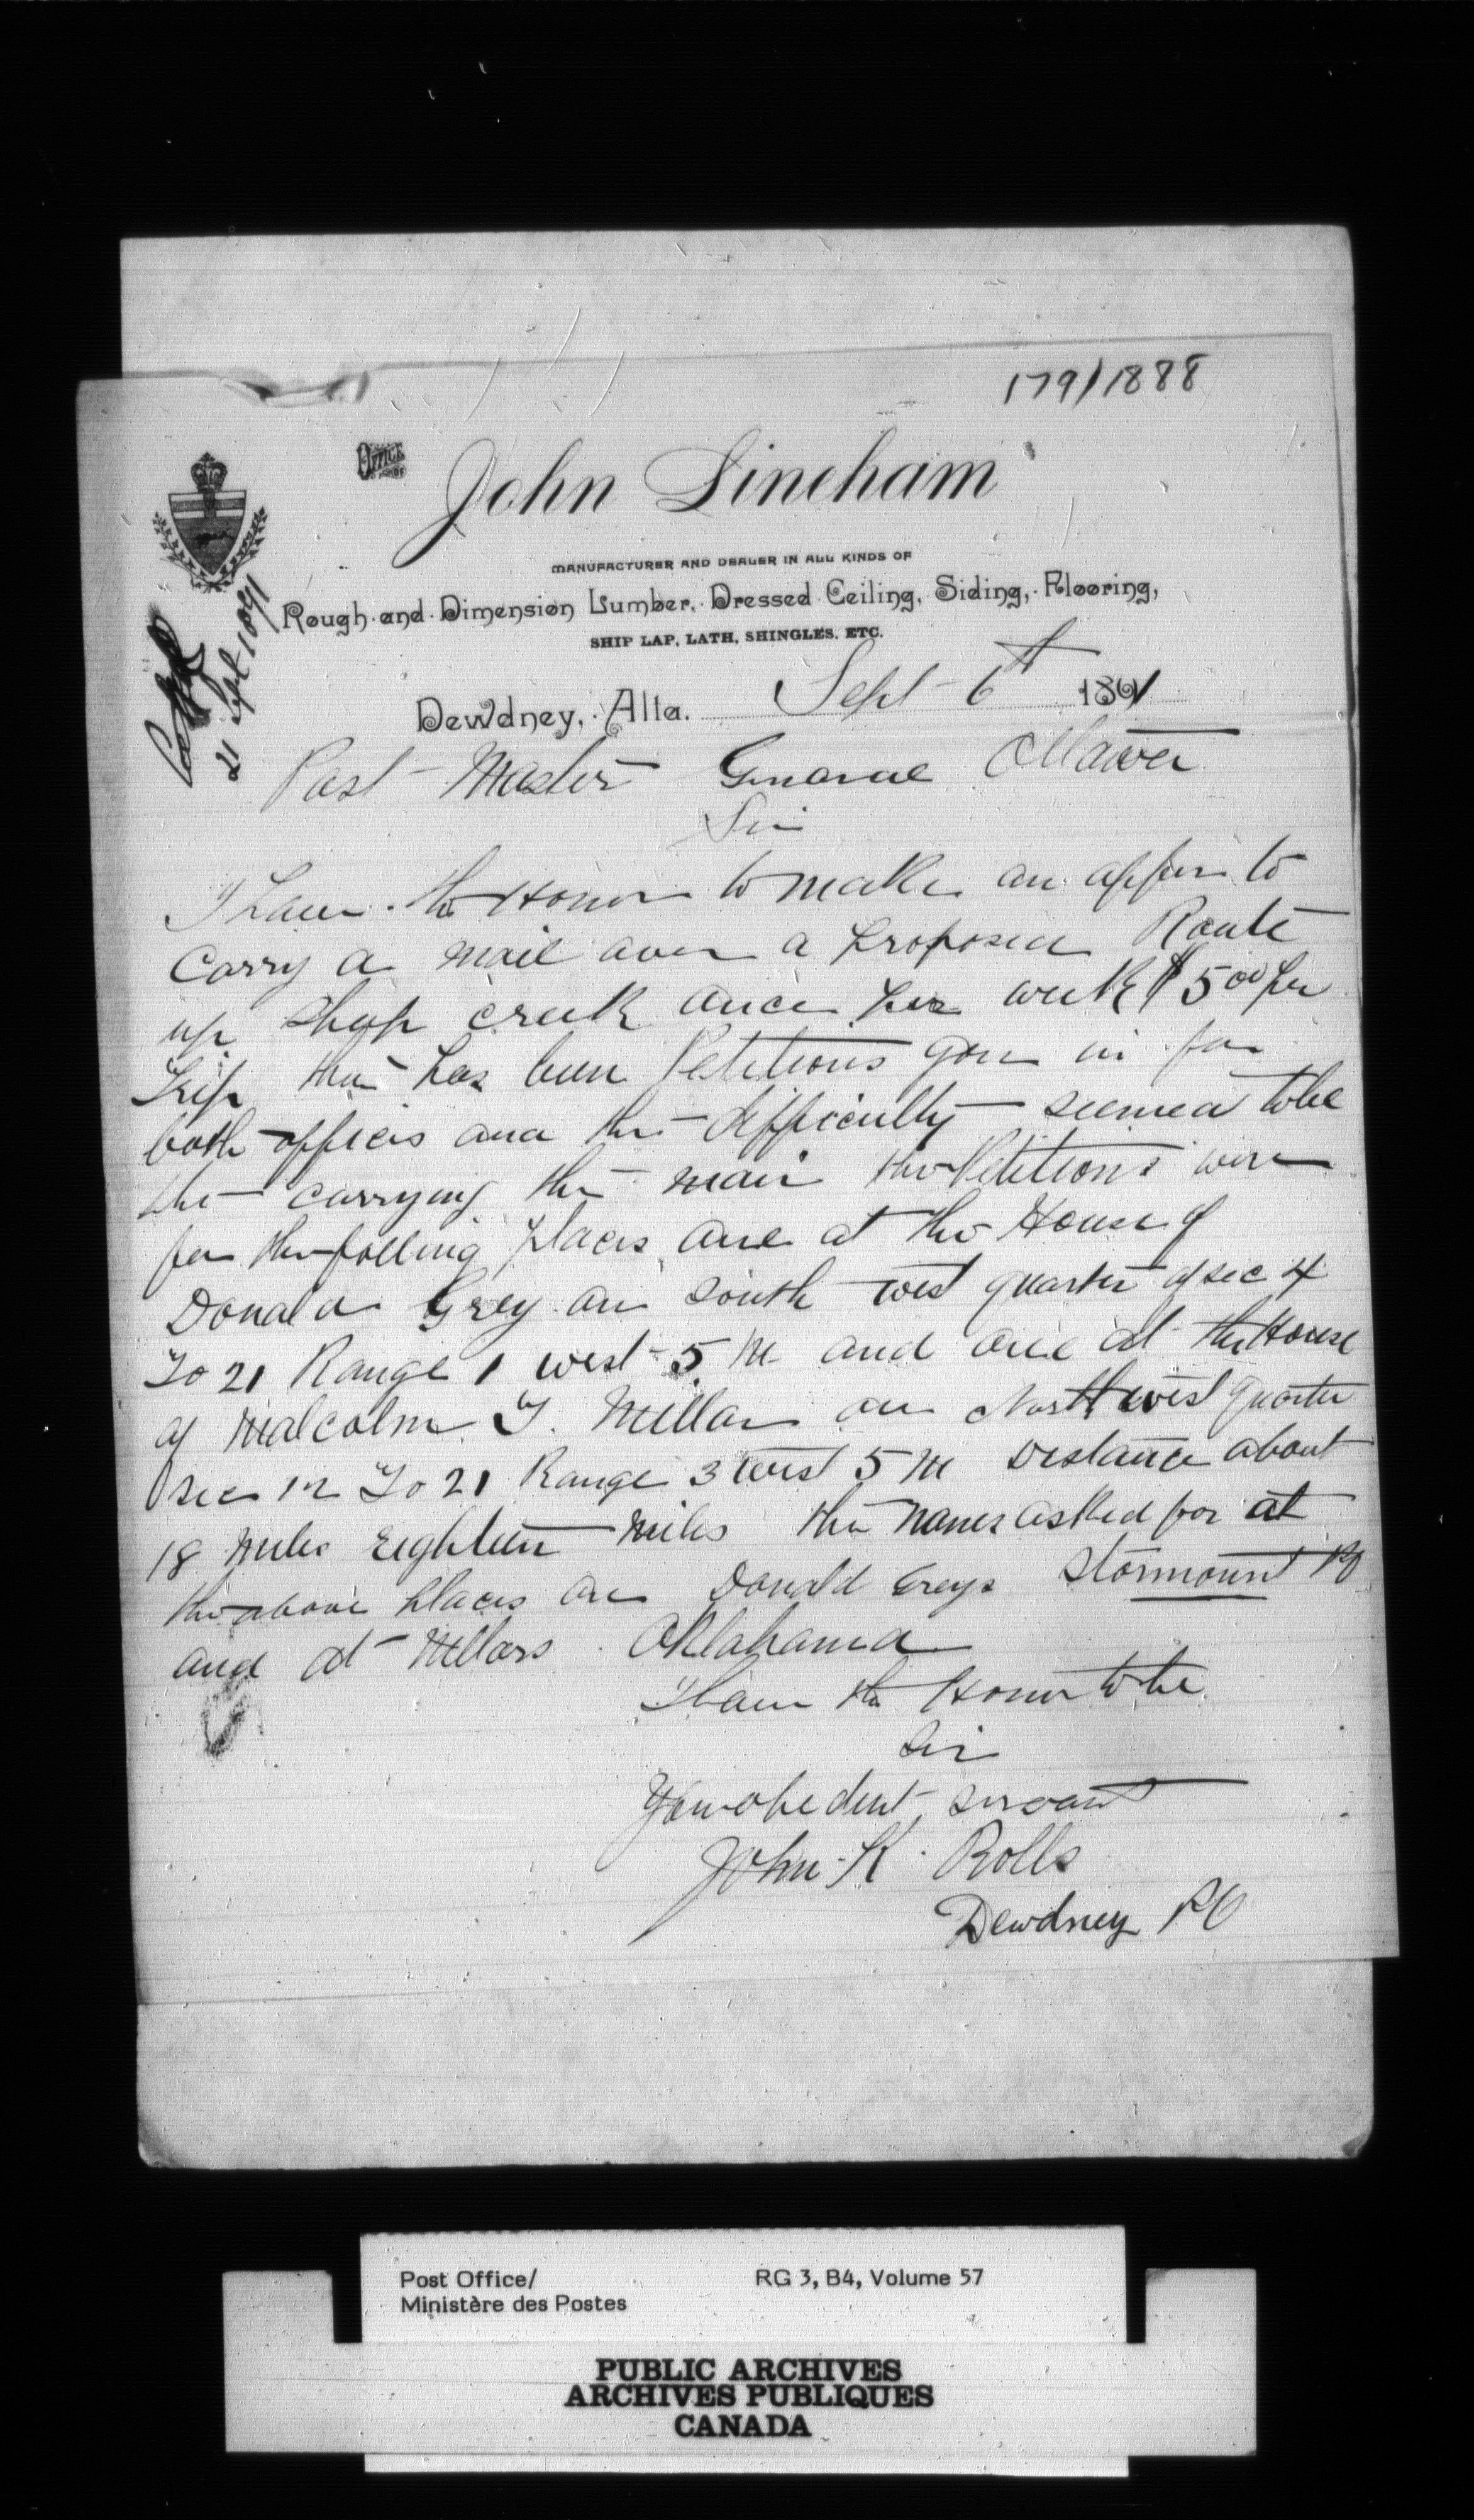 179/1888
OFFICE OF
John Lineham
MANUFACTURER AND DEALER IN ALL KINDS OF
Rough and Dimension Lumber, Dressed Ceiling, Siding, Flooring,
SHIP LAP, LATH, SHINGLES, ETC.
21 Sept 1891
Dewdney, Alta. Sept 6th 1891
Post Master General Ottawa
Sir
I have the Honor to make an offer to
Carry a mail over a proposed Route
up Sheep creek once per week $5.00 per
Trip ther has been Petitions gon in for
both offices and the difficulty seemed to be
the carrying the mail the Petitions were
for the folling places one at the House of
Donald Grey on South west quarter of sec 4
To 21 Range 1 west 5 M and one at the House
of Malcolm T. Millar on North west quarter
sec 12 To 21 Range 3 west 5 M Distance about
18 miles Eighteen miles the names asked for at
the above places are Donald Greys Stormount PO
and at Millars Oklahama
I have the Honor to be
Sir
Your obedent servant
John K. Rolls
Dewdney PO
Post Office/ RG 3, B4, Volume 57
Ministère des Postes
PUBLIC ARCHIVES
ARCHIVES PUBLIQUES
CANADA